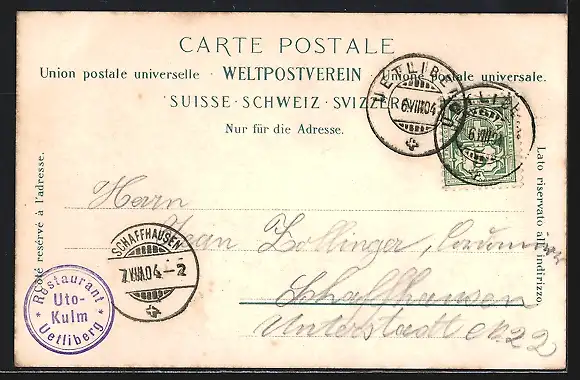 CARTE POSTALE
Union postale universelle · WELTPOSTVEREIN · Unione postale universale.
SUISSE · SCHWEIZ · SVIZZERA
Nur für die Adresse.
Côté réservé à l'adresse.
Lato riservato all' indirizzo.
UETLIBERG
6.VIII.04
6.VIII.04
Herrn
Jean Zollinger,
Schaffhausen
Unterstadt
SCHAFFHAUSEN
7.VIII.04–2
* Restaurant *
Uto-
Kulm
Uetliberg